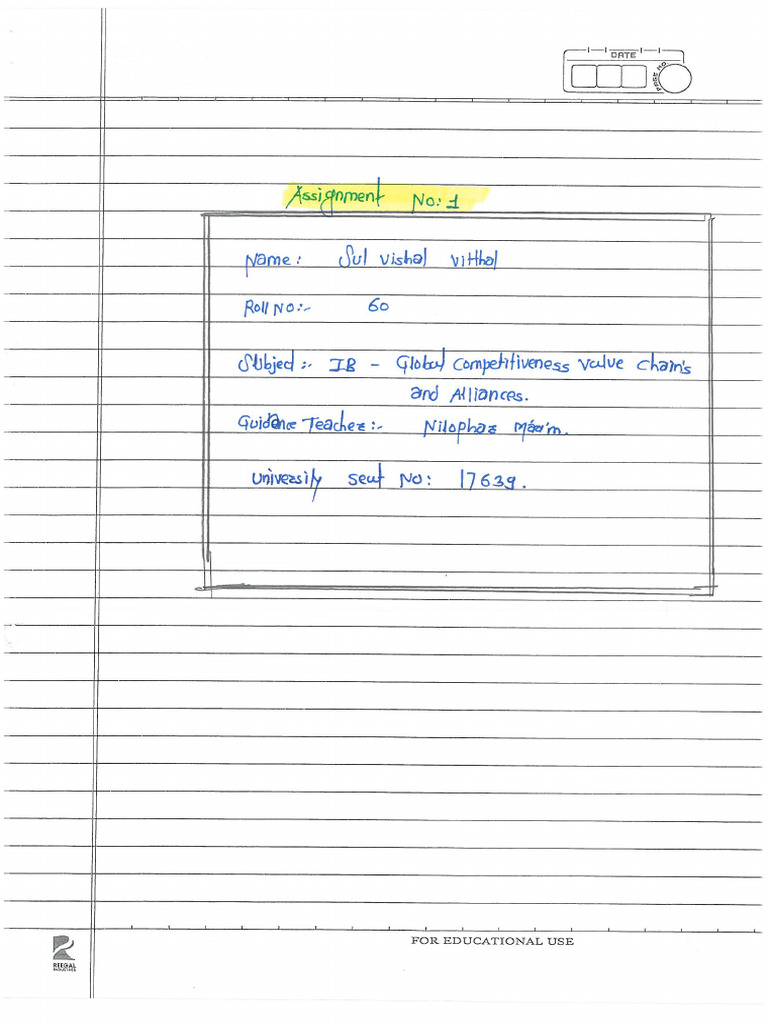 DATE
PAGE NO.
Assignment No: 1
Name: Sul vishal vitthal
Roll No:- 60
Subject:- IB - Global Competitiveness value chain's
and Alliances.
Guidance Teacher:- Nilophar Ma'am.
University seat No: 17639.
FOR EDUCATIONAL USE
REEGAL
INDUSTRIES